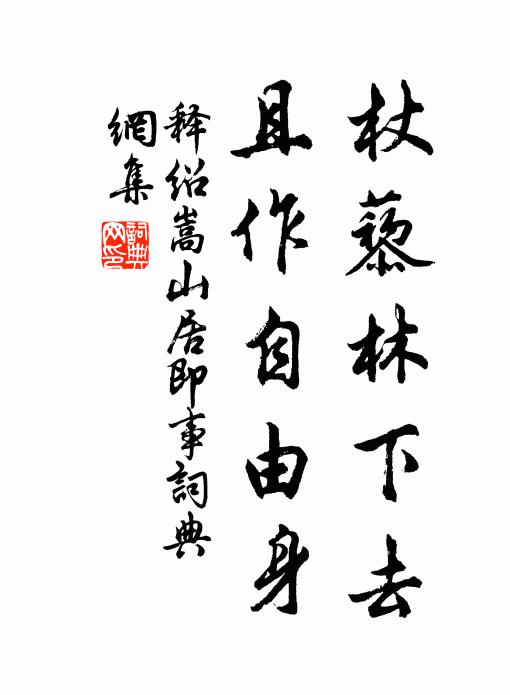 杖藜林下去
且作自由身
释绍嵩山居即事詞典
網集
詞典網印